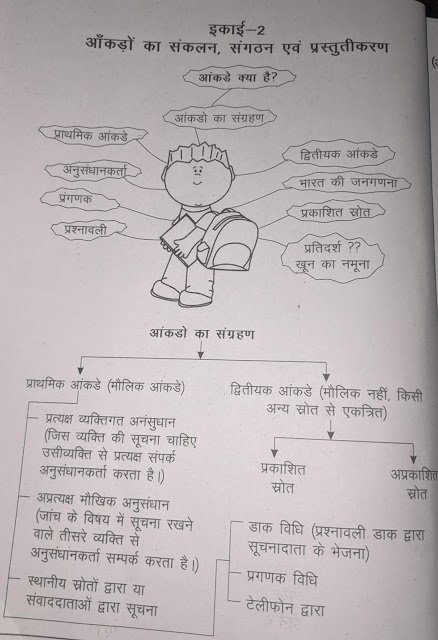 इकाई–2
आँकड़ों का संकलन, संगठन एवं प्रस्तुतीकरण
आंकडे क्या है?
आंकडो का संग्रहण
प्राथमिक आंकडे
द्वितीयक आंकडे
अनुसंधानकर्ता
भारत की जनगणना
प्रंगणक
प्रकाशित स्रोत
प्रश्नावली
प्रतिदर्श ??
खून का नमूना
आंकडो का संग्रहण
प्राथमिक आंकडे (मौलिक आंकडे)
द्वितीयक आंकडे (मौलिक नहीं, किसी
अन्य स्रोत से एकत्रित)
प्रत्यक्ष व्यक्तिगत अनंसुधान
(जिस व्यक्ति की सूचना चाहिए
उसीव्यक्ति से प्रत्यक्ष संपर्क
अनुसंधानकर्ता करता है।)
प्रकाशित
स्रोत
अप्रकाशित
स्रोत
अप्रत्यक्ष मौखिक अनुसंधान
(जांच के विषय में सूचना रखने
वाले तीसरे व्यक्ति से
अनुसंधानकर्ता सम्पर्क करता है।)
स्थानीय स्रोतों द्वारा या
संवाददाताओं द्वारा सूचना
डाक विधि (प्रश्नावली डाक द्वारा
सूचनादाता के भेजना)
प्रगणक विधि
टेलीफोन द्वारा